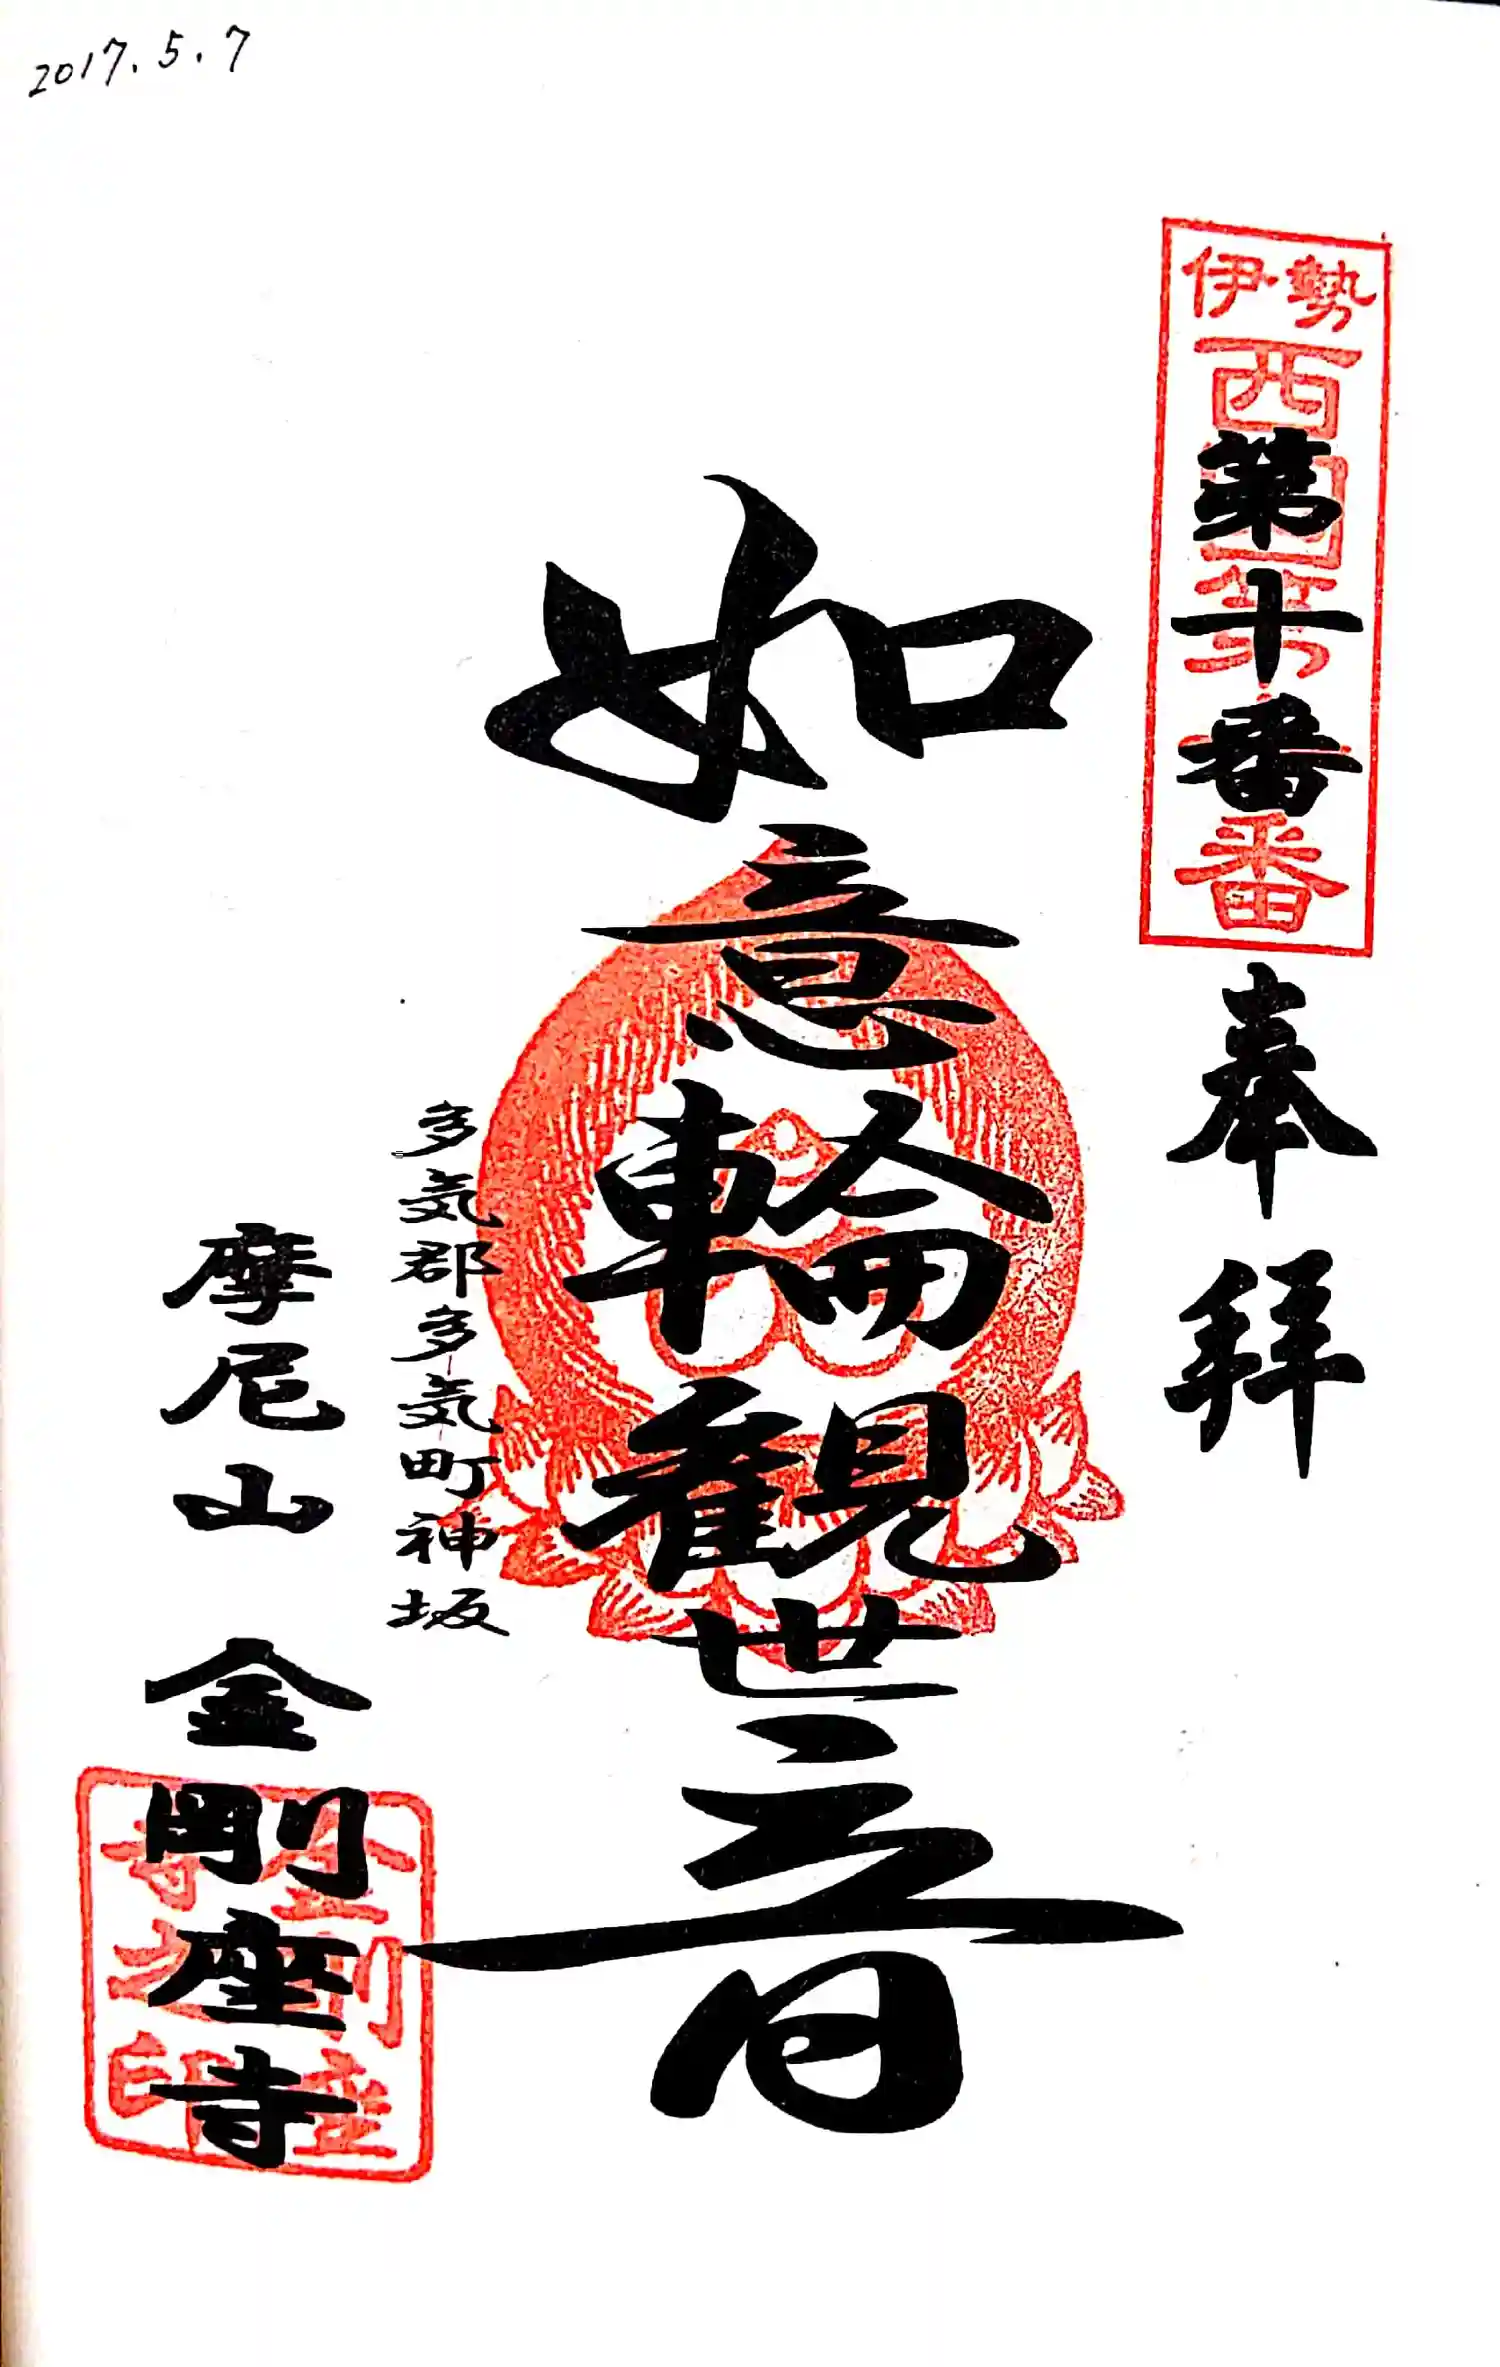 2017.5.7
伊勢
西国第 番
第十番
奉拝
如意輪観世音
多気郡多気町神坂
摩尼山 金剛座寺
金剛座寺之印